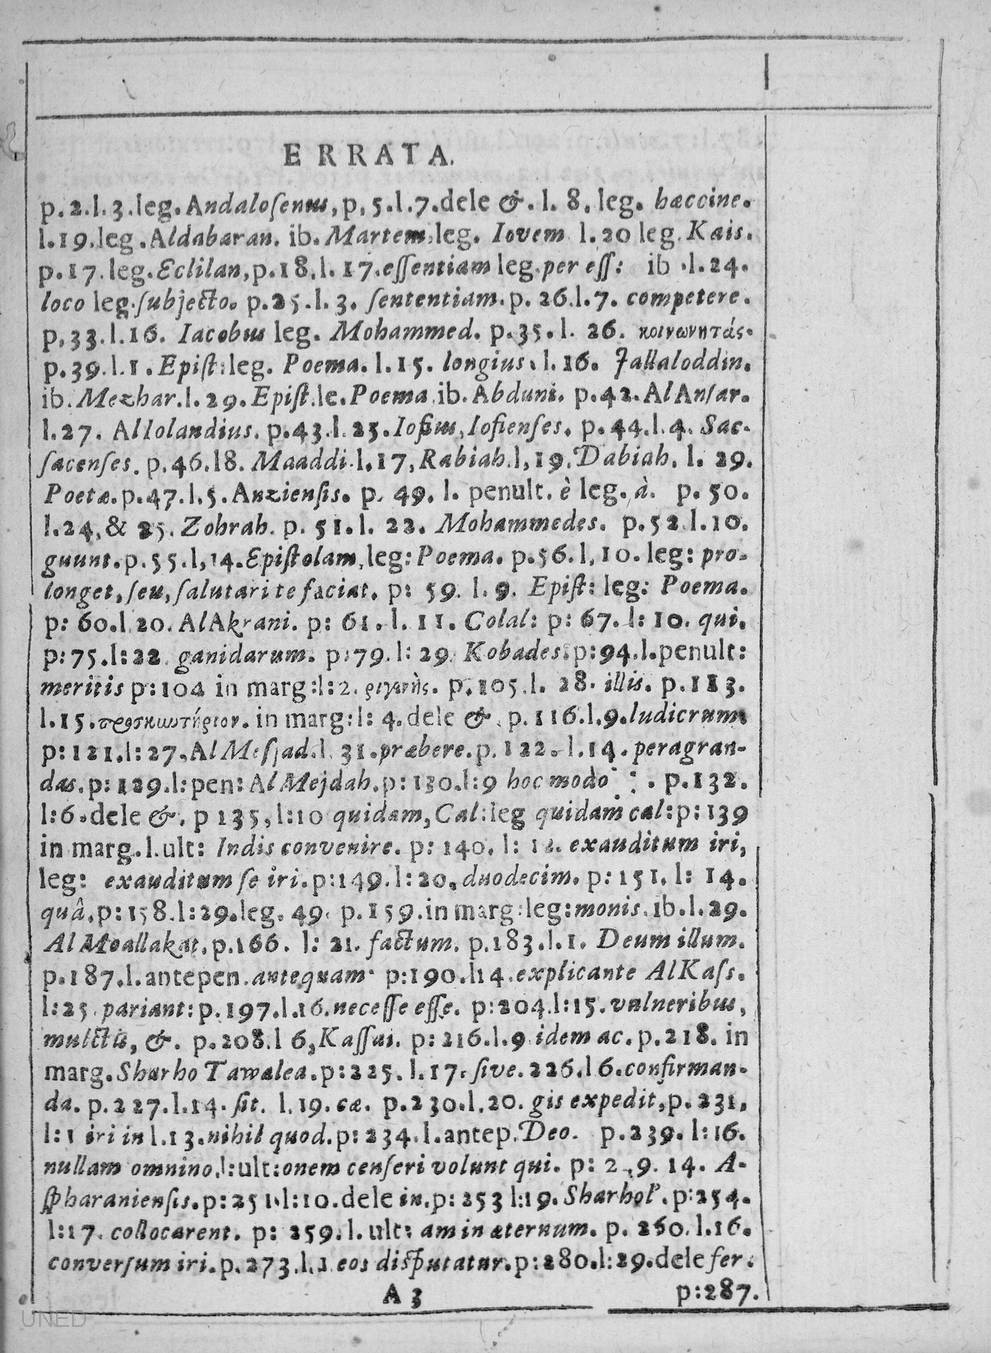 ERRATA.
p.2.l.3.leg.Andaloſenus,p.5.l.7.dele &. l. 8. leg. hæccine.
l.19.leg.Aldabaran. ib.Martem.leg. Iovem l.20 leg.Kais.
p.17.leg.Eclilan,p.18.l.17.eſſentiam leg.per eſſ: ib .l.24.
loco leg.ſubjecto. p.25.l.3. ſententiam.p. 26.l.7. competere.
p.33.l.16. Iacobus leg. Mohammed. p.35.l. 26. κοινωνητάς.
p.39.l.1.Epiſt:leg. Poema. l.15. longius. l.16. Jallaloddin.
ib.Mezhar.l.29.Epiſt.le.Poema.ib.Abduni. p.42.AlAnſar.
l.27. Allolandius. p.43.l.25.Ioſius,Ioſienſes. p.44.l.4. Sac-
ſacenſes. p.46.l8. Maaddi.l.17,Rabiah.l,19.Dabiah. l. 29.
Poetæ.p.47.l.5.Anziensis. p. 49. l. penult. è leg. à. p. 50.
l.24,& 25. Zohrah. p. 51.l. 22. Mohammedes. p.52.l.10.
guunt.p.55.l,14.Epiſtolam,leg:Poema. p.56.l,10. leg: pro-
longet,ſeu,ſalutari te faciat. p: 59. l. 9. Epiſt: leg: Poema.
p: 60.l.20.AlAkrani. p: 61. l. 11. Colal: p: 67. l: 10. qui.
p:75.l:22 ganidarum. p:79.l: 29. Kobades:p:94.l.penult:
meritis p:104 in marg:l:2. p.105.l. 28. illis. p.113.
l.15. in marg:l: 4.dele &. p.116.l.9.ludicrum
p:121.l:27.AlMeſjad.l.31.præbere.p.122.l.14.peragran-
das.p:129.l:pen:AlMejdah.p:130.l:9 hoc modo . p.132.
l:6.dele &. p 135,l:10 quidam,Cal:leg quidam cal:p:139
in marg.l.ult: Indis convenire. p: 140. l: exauditum iri,
leg: exauditum ſe iri.p:149.l:20.duodecim. p: 151. l: 14.
quâ.p:158.l:29.leg. 49. p.159.in marg:leg:monis.ib.l.29.
Al Moallakat.p.166. l: 21. factum. p.183.l.1. Deum illum.
p.187.l.antepen.antequam. p:190.l14.explicante AlKaſs.
l:25.pariant:p.197.l.16.neceſſe eſſe. p:204.l:15.vulneribus,
mulctis, &. p.208.l 6,Kaſſai. p:216.l.9 idem ac.p.218. in
marg.Sharho Tawalea.p:225.l.17.ſive.226.l6.confirman-
da.p.227.l.14.ſit. l.19.ea. p.230.l.20. gis expedit,p.231,
l:1 iri in l.13.nihil quod.p:234.l.antep.Deo. p.239. l:16.
nullam omnino.l:ult:onem cenſeri volunt qui. p: 14. A-
ſpharanienſis.p:251.l:10.dele in.p:253 l:19.Sharhol'.p:254.
l:17.collocarent. p: 259.l.ult: am in æternum. p. 260.l.16.
converſum iri.p.273.l.1 eos diſputatur.p:280.l:29.dele fer:
A 3 p:287.
UNED